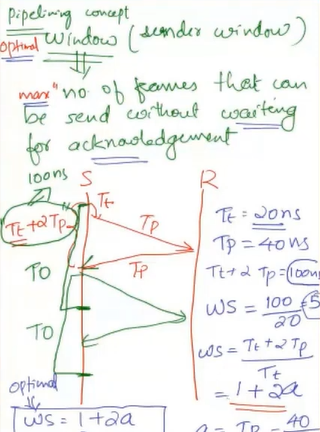 Pipelining concept
optimal window (sender window)
max^m no. of frames that can
be send without waiting
for acknowledgement
100ns
S R
Tt
Tt+2Tp
Tp
Tp
TO
TO
Tt = 20ns
Tp = 40ns
Tt + 2 Tp = 100ns
WS = 100/20 = 5
WS = Tt + 2Tp / Tt
= 1 + 2a
optimal
WS = 1+2a
a = Tp = 40